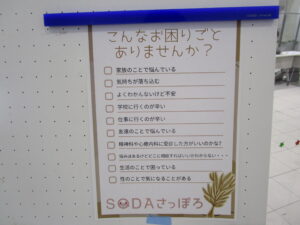 こんなお困りごと
ありませんか？
家族のことで悩んでいる
気持ちが落ち込む
よくわかんないけど不安
学校に行くのが辛い
仕事に行くのが辛い
友達のことで悩んでいる
精神科や心療内科に受診した方がいいのかな？
悩みはあるけどどこに相談すればいいかわからない・・・
生活のことで困っている
性のことで気になることがある
SODAさっぽろ